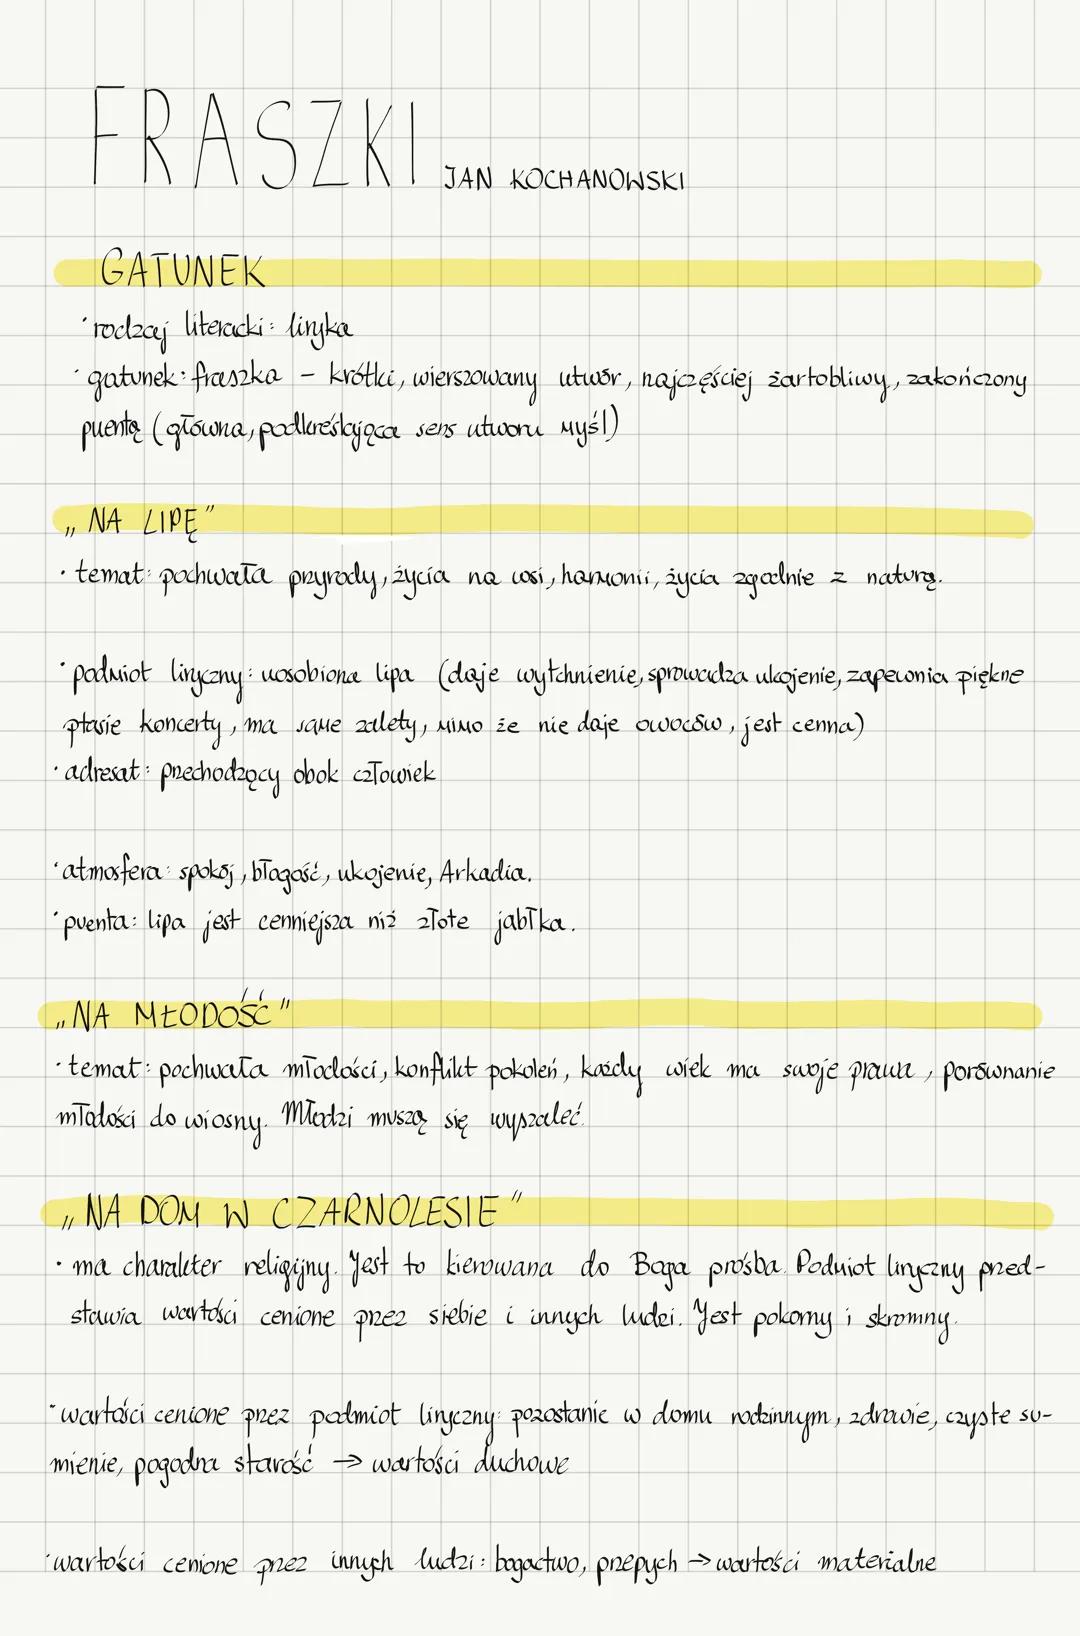 FRASZKI JAN KOCHANOWSKI
GATUNEK
· rodzaj literacki: liryka
· gatunek: fraszka – krótki, wierszowany utwór, najczęściej żartobliwy, zakończony
puentą (główna, podkreślająca sens utworu myśl)
„NA LIPĘ”
· temat: pochwała przyrody, życia na wsi, harmonii, życia zgodnie z naturą.
· podmiot liryczny: uosobiona lipa (daje wytchnienie, sprowadza ukojenie, zapewnia piękne
ptasie koncerty, ma same zalety, mimo że nie daje owoców, jest cenna)
· adresat: przechodzący obok człowiek
· atmosfera: spokój, błogość, ukojenie, Arkadia.
· puenta: lipa jest cenniejsza niż złote jabłka.
„NA MŁODOŚĆ”
· temat: pochwała młodości, konflikt pokoleń, każdy wiek ma swoje prawa, porównanie
młodości do wiosny. Młodzi muszą się wyszaleć.
„NA DOM W CZARNOLESIE”
· ma charakter religijny. Jest to kierowana do Boga prośba. Podmiot liryczny przed-
stawia wartości cenione przez siebie i innych ludzi. Jest pokorny i skromny.
· wartości cenione przez podmiot liryczny: pozostanie w domu rodzinnym, zdrowie, czyste su-
mienie, pogodna starość → wartości duchowe
· wartości cenione przez innych ludzi: bogactwo, przepych → wartości materialne